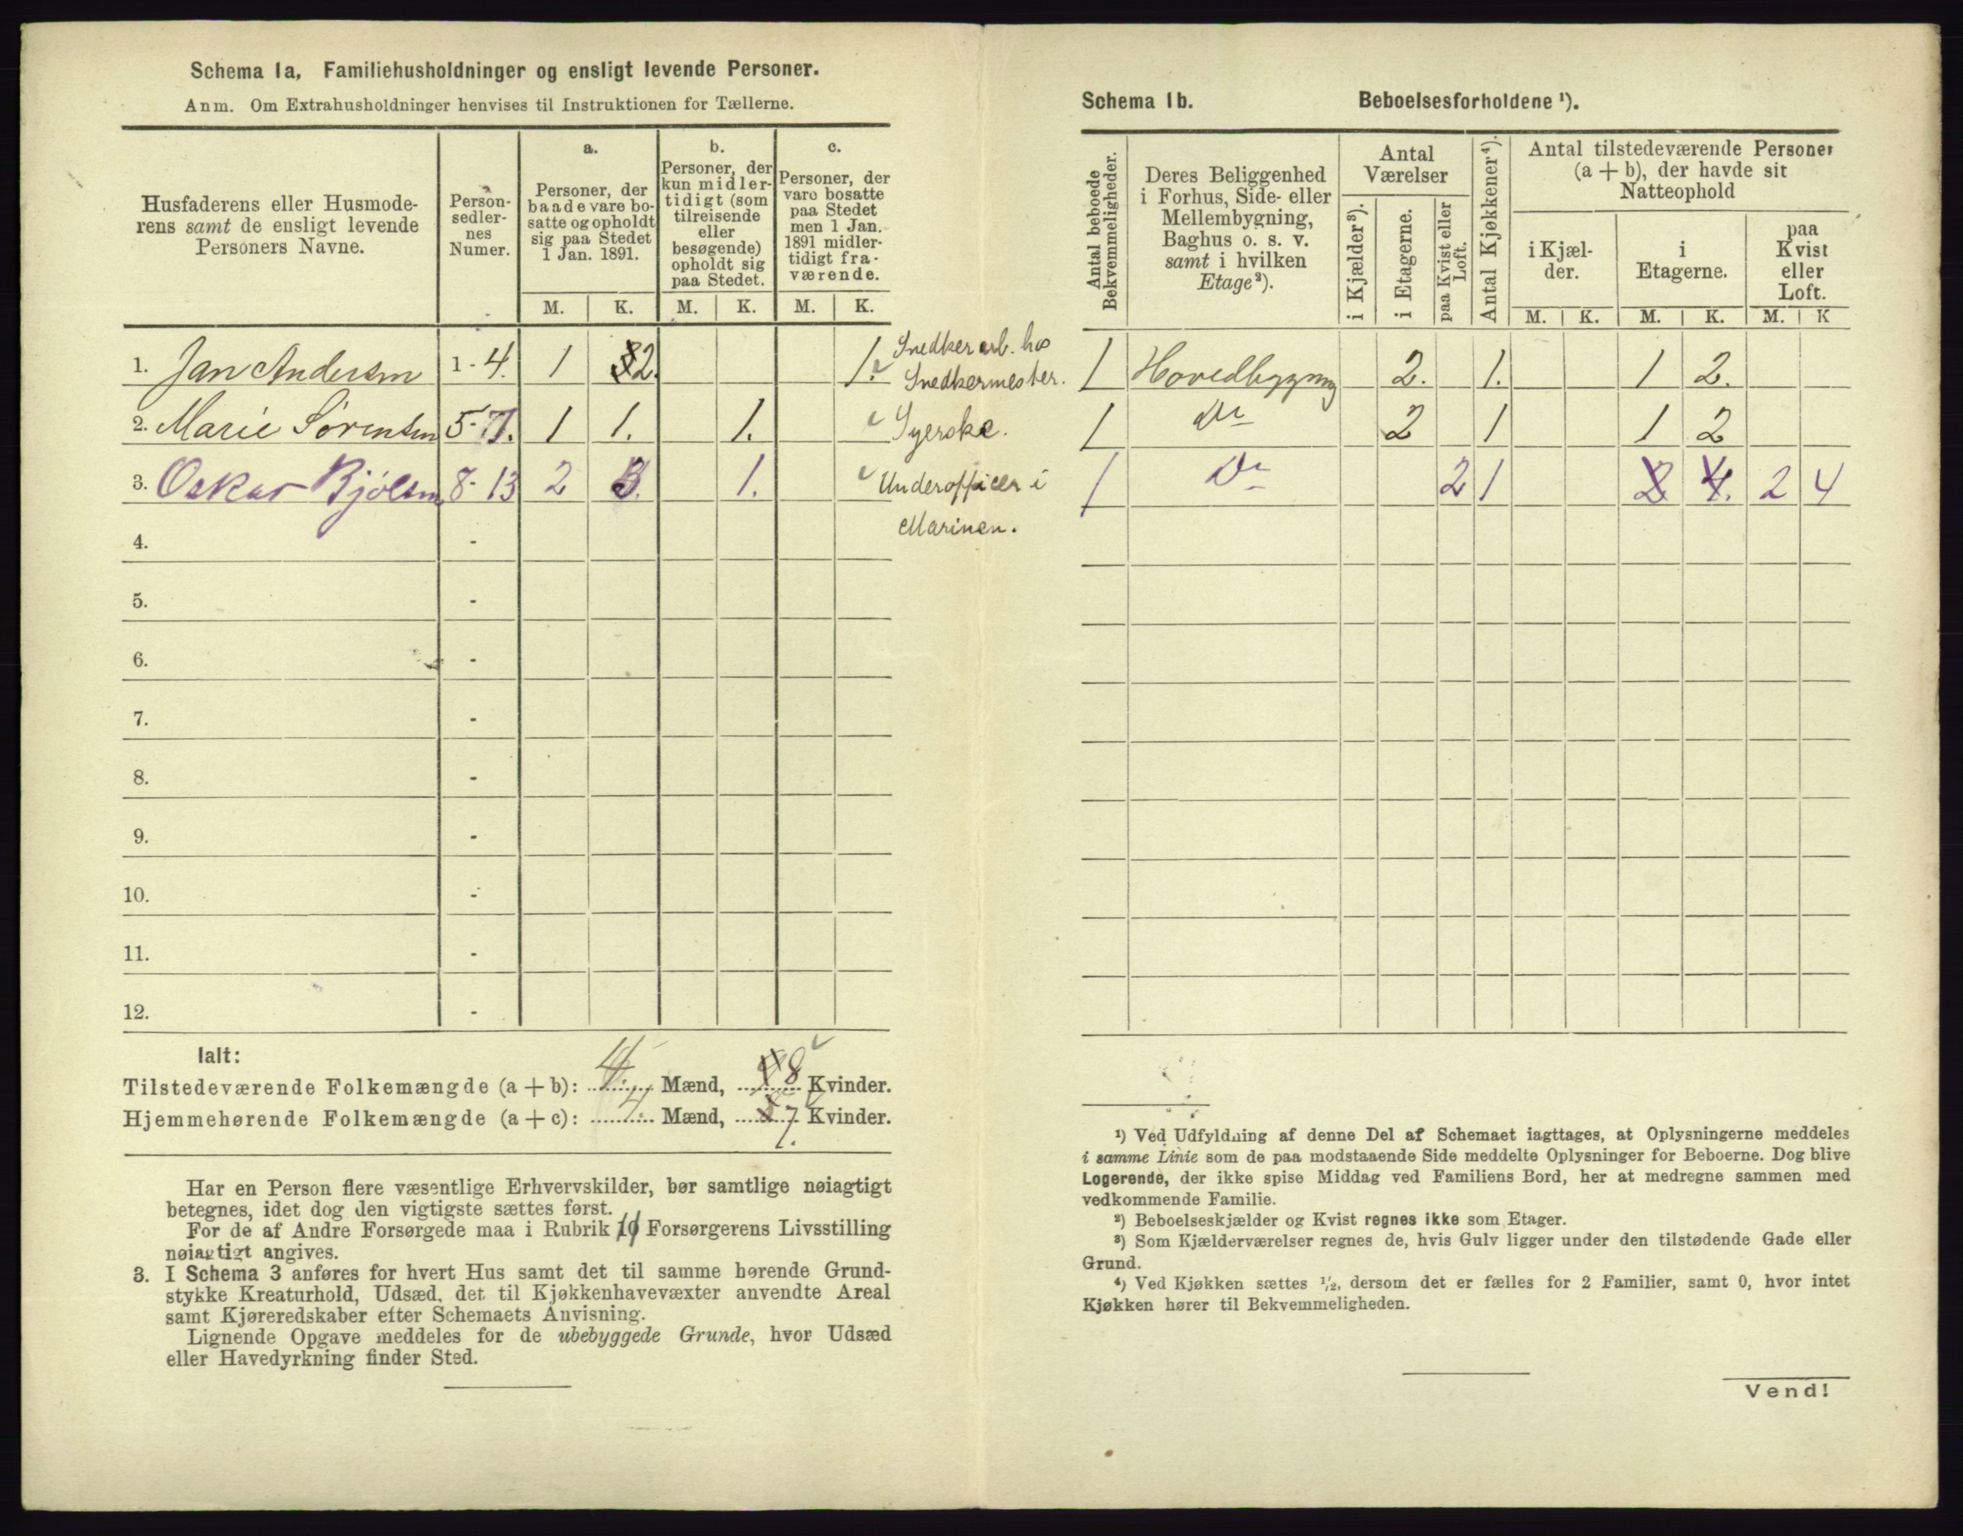 Schema 1a, Familiehusholdninger og ensligt levende Personer.
Anm. Om Extrahusholdninger henvises til Instruktionen for Tællerne.
Husfaderens eller Husmode-
rens samt de ensligt levende
Personers Navne.
Person-
sedler-
nes
Numer.
a.
Personer, der
baade vare bo-
satte og opholdt
sig paa Stedet
1 Jan. 1891.
b.
Personer, der
kun midler-
tidigt (som
tilreisende
eller
besøgende)
opholdt sig
paa Stedet.
c.
Personer, der
vare bosatte
paa Stedet
men 1 Jan.
1891 midler-
tidigt fra-
værende.
M. K. M. K. M. K.
1. Jan Andersen 1-4. 1 2. 1. Snedkerarb. hos
Snedkermester.
2. Marie Sørensen 5-7. 1 1. 1. Syerske.
3. Oskar Bjölsen 8-13 2 3. 1. Underofficer i
Marinen.
4. -
5. -
6. -
7. -
8. -
9. -
10. -
11. -
12. -
Ialt:
Tilstedeværende Folkemængde (a + b): 4. Mænd, 8 Kvinder.
Hjemmehørende Folkemængde (a + c): 4. Mænd, 7. Kvinder.
Har en Person flere væsentlige Erhvervskilder, bør samtlige nøiagtigt
betegnes, idet dog den vigtigste sættes først.
For de af Andre Forsørgede maa i Rubrik 11 Forsørgerens Livsstilling
nøiagtigt angives.
3. I Schema 3 anføres for hvert Hus samt det til samme hørende Grund-
stykke Kreaturhold, Udsæd, det til Kjøkkenhavevæxter anvendte Areal
samt Kjøreredskaber efter Schemaets Anvisning.
Lignende Opgave meddeles for de ubebyggede Grunde, hvor Udsæd
eller Havedyrkning finder Sted.
Schema 1b. Beboelsesforholdene ¹).
Antal beboede
Bekvemmeligheder.
Deres Beliggenhed
i Forhus, Side- eller
Mellembygning,
Baghus o. s. v.
samt i hvilken
Etage²).
Antal
Værelser
i Kjælder³).
i Etagerne.
paa Kvist eller
Loft.
Antal Kjøkkener⁴).
Antal tilstedeværende Personer
(a + b), der havde sit
Natteophold
i Kjæl-
der.
i
Etagerne.
paa
Kvist
eller
Loft.
M. K. M. K. M. K
1 Hovedbygning 2. 1. 1 2.
1 Do 2 1 1 2
1 Do 2 1 2 4. 2 4
¹) Ved Udfyldning af denne Del af Schemaet iagttages, at Oplysningerne meddeles
i samme Linie som de paa modstaaende Side meddelte Oplysninger for Beboerne. Dog blive
Logerende, der ikke spise Middag ved Familiens Bord, her at medregne sammen med
vedkommende Familie.
²) Beboelseskjælder og Kvist regnes ikke som Etager.
³) Som Kjælderværelser regnes de, hvis Gulv ligger under den tilstødende Gade eller
Grund.
⁴) Ved Kjøkken sættes ½, dersom det er fælles for 2 Familier, samt 0, hvor intet
Kjøkken hører til Bekvemmeligheden.
Vend!